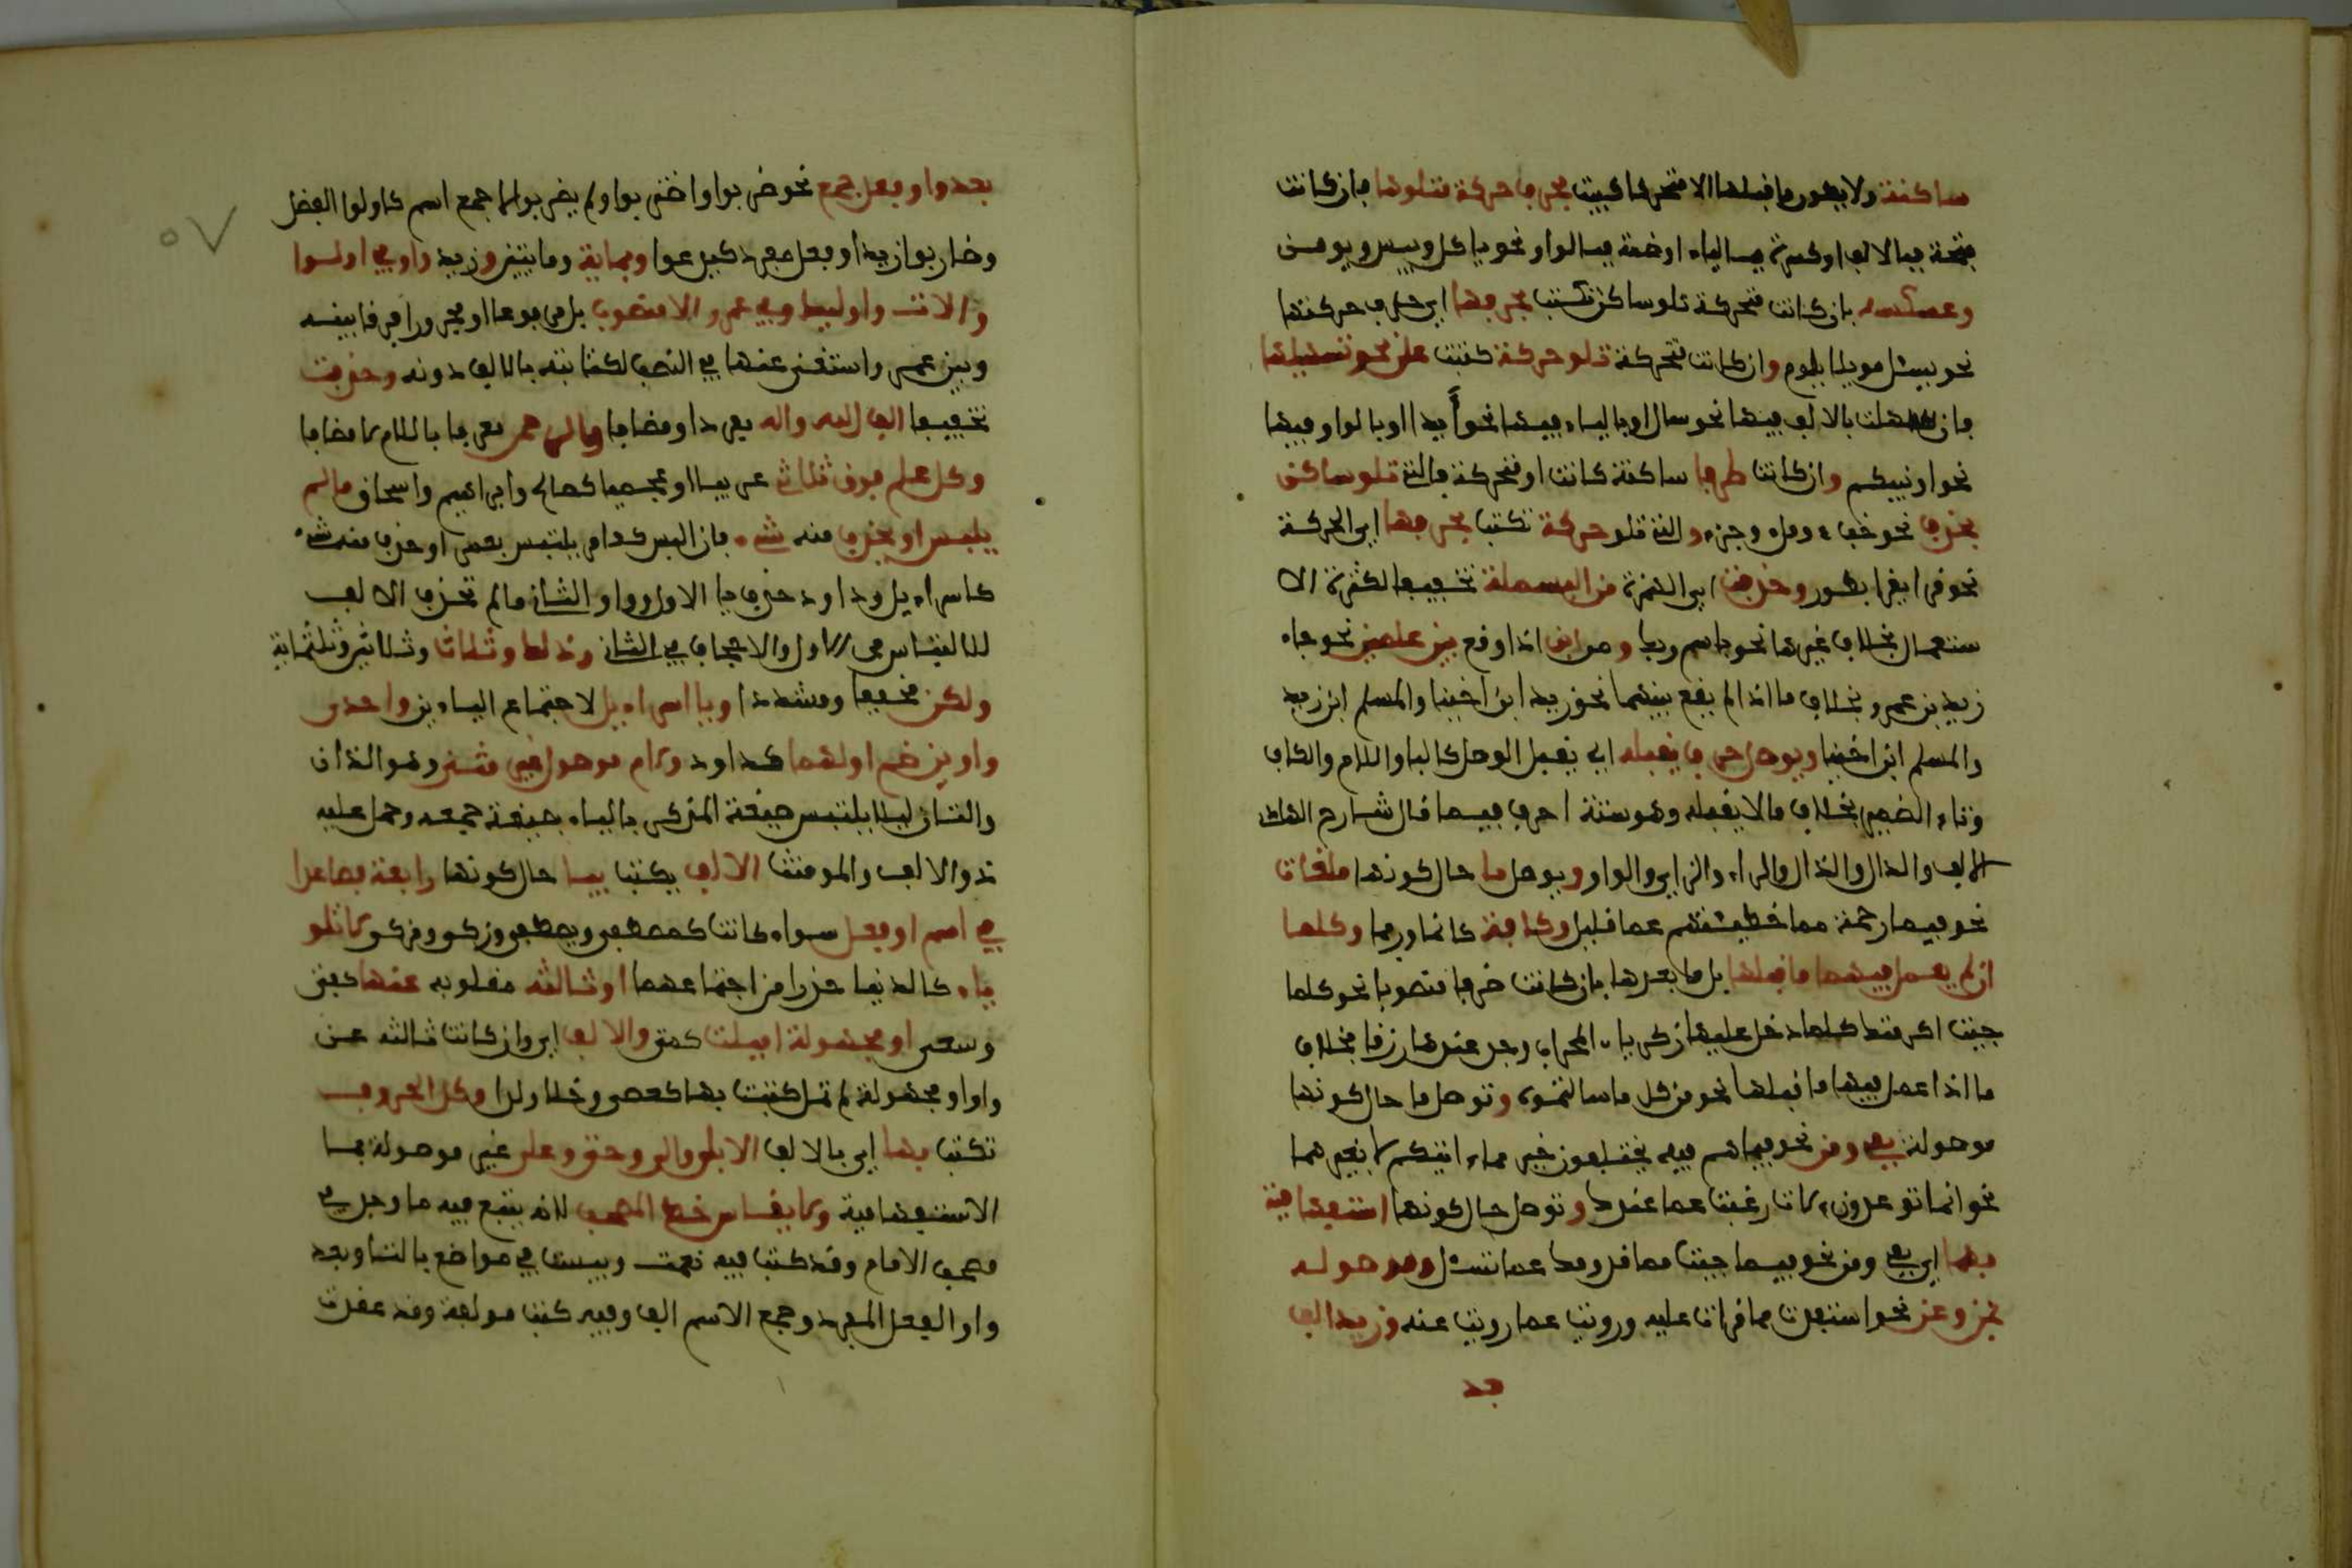 ساكنة ولا يكون ما قبلها الا متحركا كتبت بحرف حركة متلوها فان كانت
فتحة فبالالف او كسرة فبالياء او ضمة فبالواو نحو ياكل وبيس ويومن
وعكسه بان كانت متحركة تلو ساكن تكتب بحرفها اي حرف حركتها
نحو يسئل مويلا يلوم وان كانت متحركة تلو حركة كتبت على نحو تسهيلها
فان سهلت بالالف فبها نحو سال او بالياء فبها نحو ايذا او بالواو فبها
نحو اونبيكم وان كانت طرفا ساكنة كانت او متحركة فالتي تلو ساكن
تحذف نحو خبء وملء وجزء والتي تلو حركة تكتب بحرفها اي الحركة
نحو قرا يقرا وحذفت اي الهمزة من البسملة تخفيفا لكثرة الا
ستعمال بخلاف غيرها نحو باسم ربك ومن ابن اذا وقع بين علمين نحو جاء
زيد بن عمرو بخلاف ما اذا لم يقع بينهما نحو زيد ابن اخينا والمسلم ابن زيد
والمسلم ابن اخينا ويوصل حرف يقبله اي يقبل الوصل كالباء واللام والكاف
وتاء الضمير بخلاف ما لا يقبله وهو ستة احرف فيما قال شارح الهادي
الالف والدال والذال والراء والزاي والواو ويوصل ما حال كونها ملغاة
نحو فبما رحمة مما خطيئتهم عما قليل وكافة كانما وربما وكلما
ان لم يعمل فيهما ما قبلها بل ما بعدها بان كانت ظرفا منصوبا نحو كلما
جيت اكرمتك كلما دخل عليها زكرياء المحراب وجد عندها رزقا بخلاف
ما اذا عمل فيها ما قبلها نحو من كل ما سالتموه وتوصل ما حال كونها
موصولة بفي ومن نحو فيما هم فيه يختلفون خير مما اتيكم لا بغيرهما
نحو ان ما توعدون لات رغبت عما عندك وتوصل حال كونها استفهامية
بهما اي بفي ومن نحو فيما جيت مما قدومك عما تسئل وموصولة
بمن وعن نحو استفدت مما قرات عليه ورويت عما رويت عنه وزيد الف
بعد
بعد واو فعل جمع نحو ضربوا واضربوا ولم يضربوا لا جمع اسم كاولوا الفضل
وضاربوا زيد او فعل مفرد كيدعوا وبماية وما يتين وزيد واو في اولوا
والات واوليك وفي عمرو لا منصوب بل مرفوعا او مجرورا فرقا بينه
وبين عمر واستغنى عنها في النصب لكتابته بالالف دونه وحذفت
تخفيفا الف الله واله مفردا ومضافا والرحمن معرفا باللام لا مضافا
وكل علم فوق ثلاثة عربيا او عجميا كصالح وابراهيم واسحاق ما لم
يلبس او يحذف منه شيء فان البس كعامر يلتبس بعمر او حذف منه شيء
كاسراءيل وداود حذف يا الاول وواو الثاني ما لم تحذف الالف
للالتباس في الاول والاجحاف في الثاني وذلك وثلاث وثلاثين وثلثماية
ولكن مخففا ومشددا ويا اسراءيل لاجتماع الياءين واحدى
واوين ضم اولهما كداود ولام موصول غير مثنى وهو اللذان
واللتان ليلا يلتبس صيغة المذكر بالياء بصيغة جمعه وحمل عليه
ذو الالف والمونث الالف يكتب بيا حال كونها رابعة فصاعدا
في اسم او فعل سواء كانت كمصطفى ويصطفى وزكى لا تلو
ياء كالدنيا حذرا من اجتماعهما او ثالثة مقلوبة عنها كفتى
وسعى او مجهولة اميلت كمتى والالف اي وان كانت ثالثة عن
واو او مجهولة لم تمل كتبت بها كعصى وخلا ولدا وكل الحروف
تكتب بها اي بالالف الا بلى والى وحتى وعلى غير موصولة بما
الاستفهامية ولا يقاس خط المصحف لانه يتبع فيه ما وجد في
مصحف الامام وقد كتب فيه نعمت وبينت في مواضع بالتا وبعد
واو الفعل المفرد وجمع الاسم الف وفيه كتب مولفة وقد عقدت
٥٧